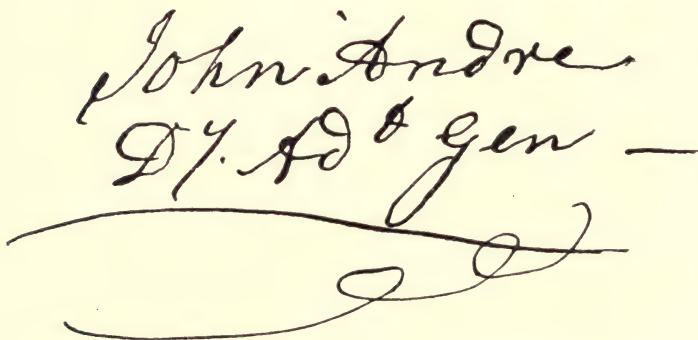 John Andre
Dy. Adt Gen —